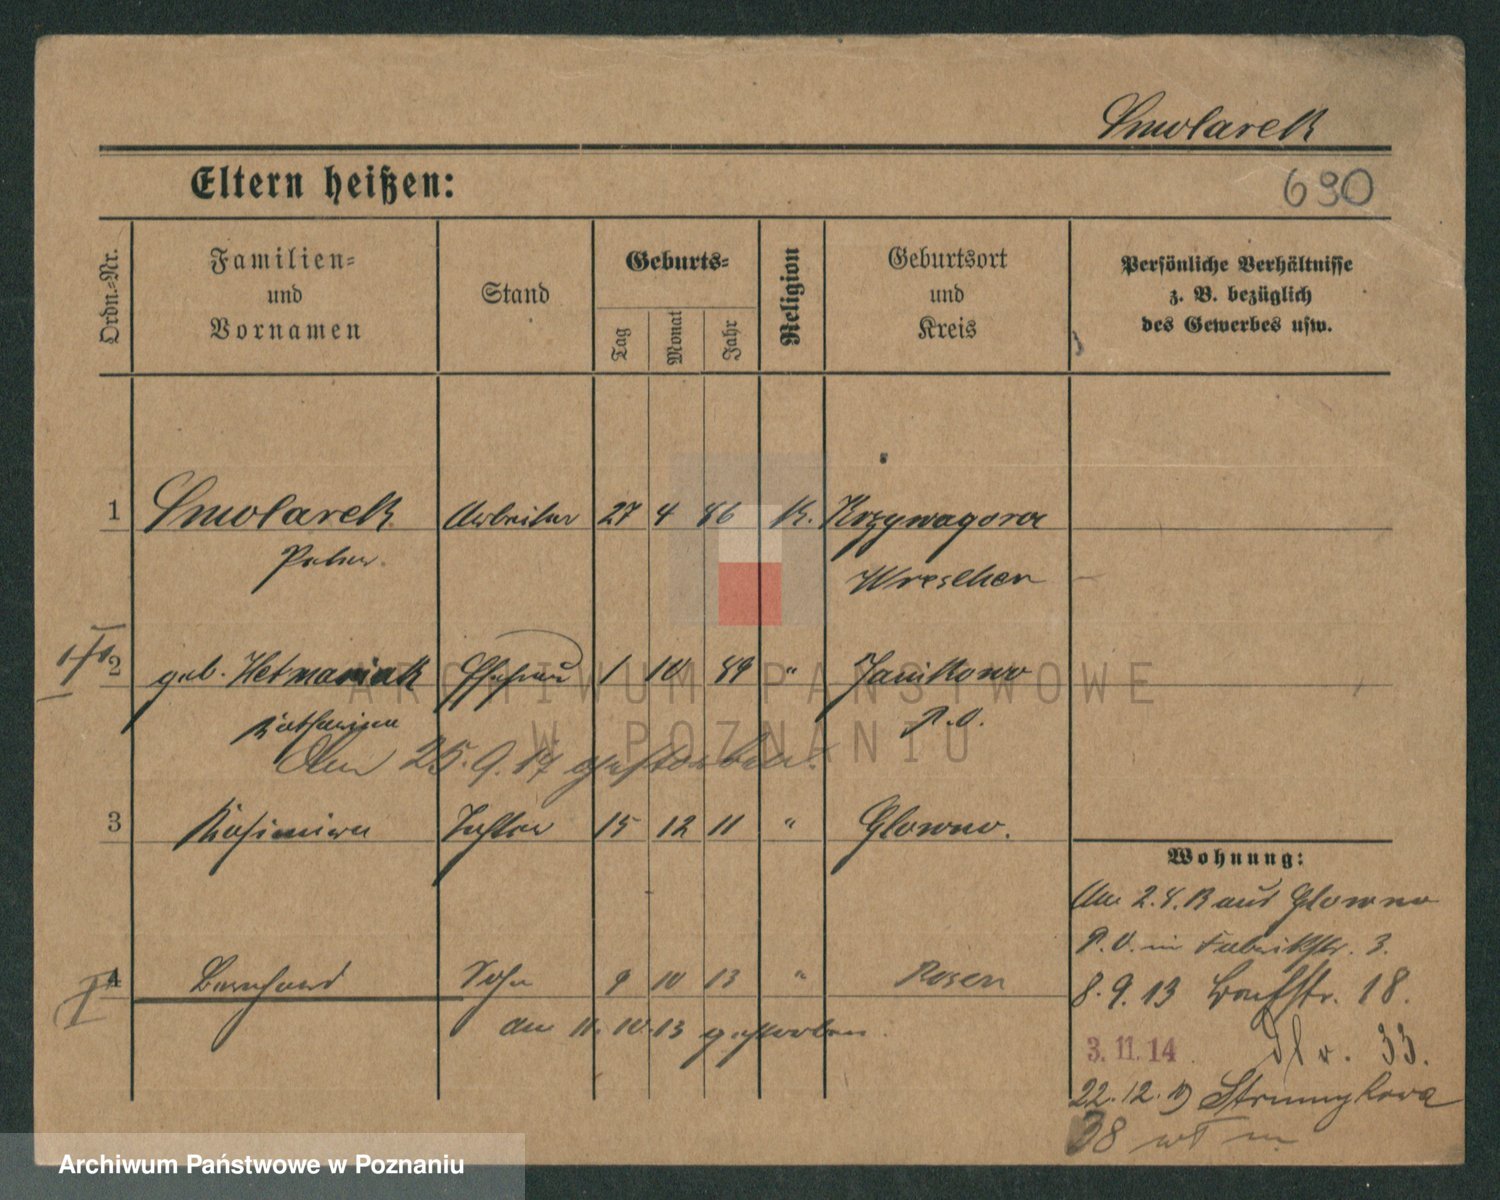 Smolarek
Eltern heißen:
690
Ordn.=Nr.
Familien=
und
Vornamen
Stand
Geburts=
Tag
Monat
Jahr
Religion
Geburtsort
und
Kreis
Persönliche Verhältnisse
z. B. bezüglich
des Gewerbes usw.
1 Smolarek Arbeiter 27 4 86 K. Krzywagora
Peter. Wreschen
2 geb. Hetmaniak Ehefrau 1 10 89 " Janikowo
Katharina P.O.
Am 25.9.17 gestorben.
3 Kasimira Tochter 15 12 11 " Glowno.
4 Bernhard Sohn 9 10 13 " Posen
am 11. 10. 13 gestorben.
Wohnung:
Am 2.4.13 aus Glowno
P.O. in Fabrikstr. 3.
8.9.13 18.
3.11.14 33.
22.12.19 Strumykowa
38
ARCHIWUM PAŃSTWOWE
W POZNANIU
Archiwum Państwowe w Poznaniu